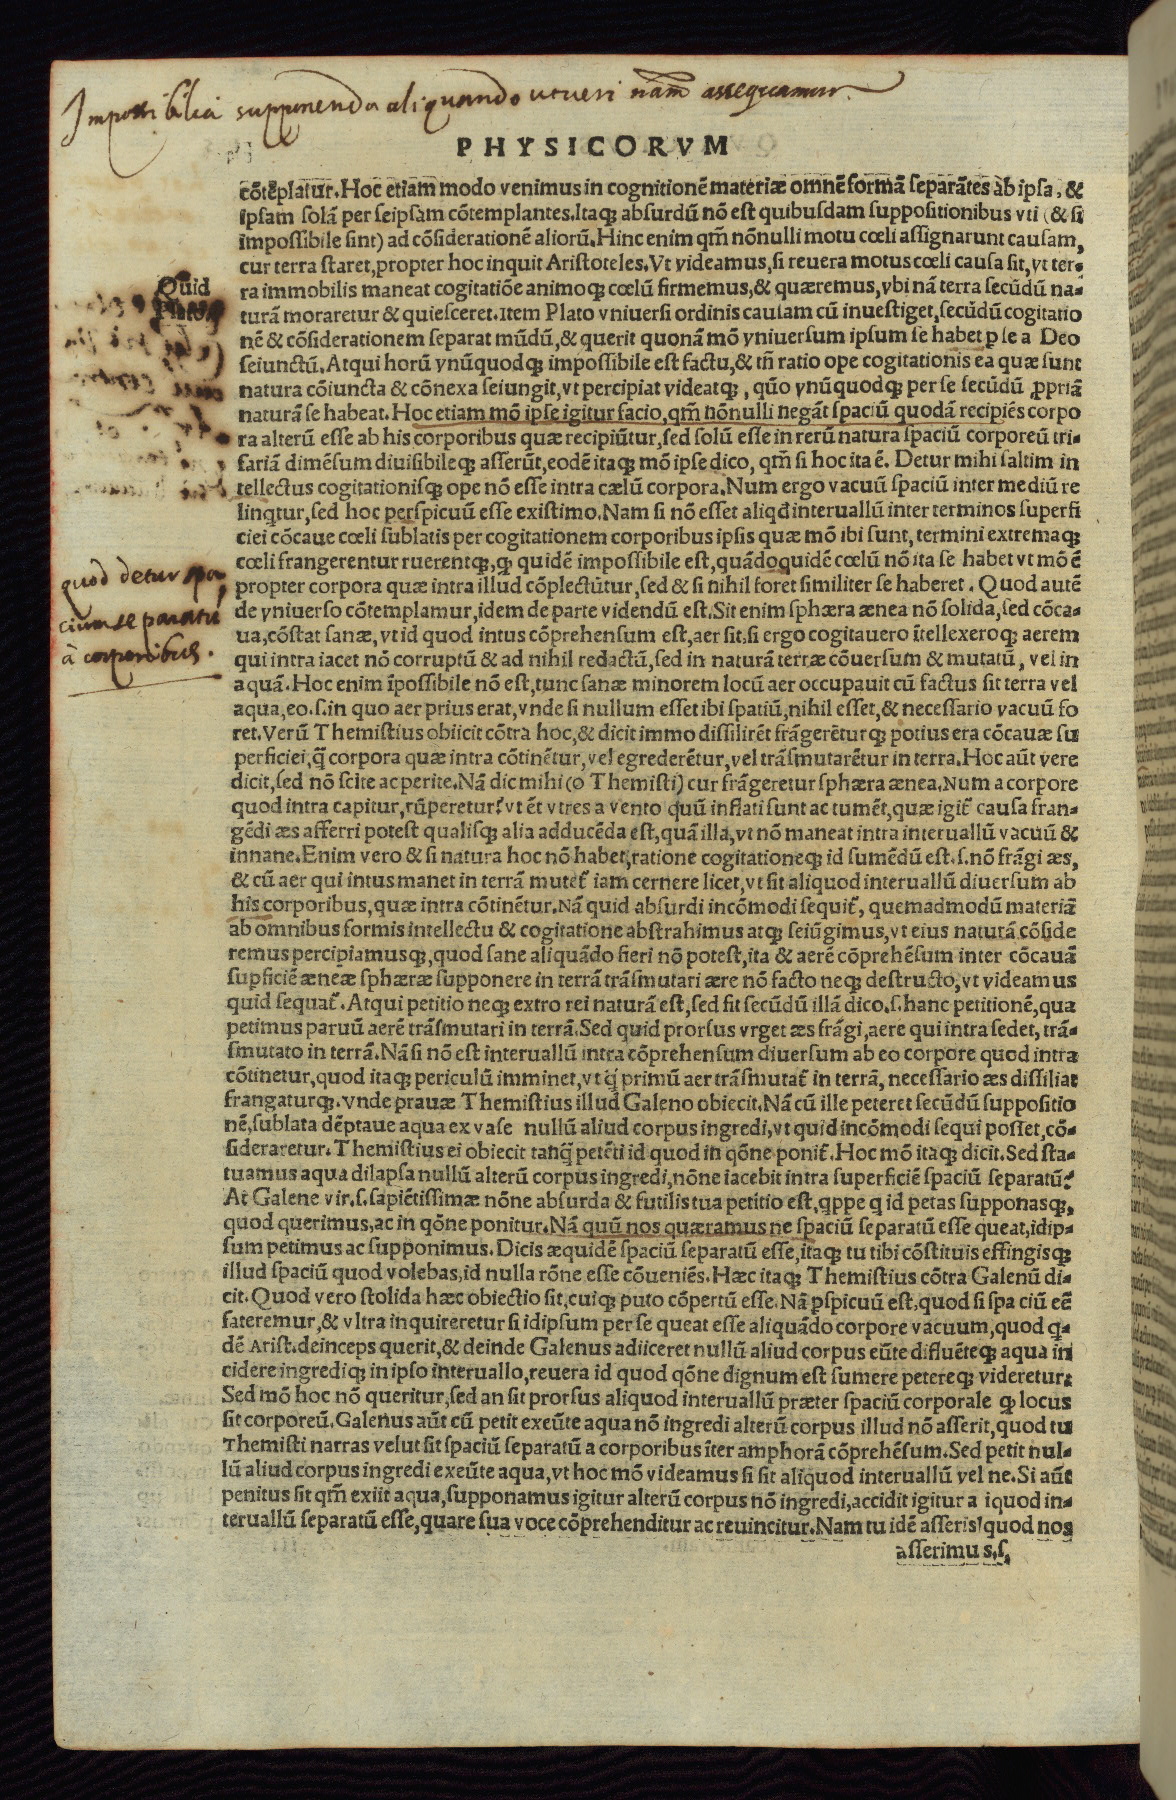 Impossibilia supponenda aliquando ut veri nam assequamur.
PHYSICORVM
cõtẽplatur. Hoc etiam modo venimus in cognitionẽ materiæ omnẽ formã separãtes ab ipsa, &
ipsam solã per seipsam cõtemplantes. Itaq; absurdũ nõ est quibusdam suppositionibus vti (& si
impossibile sint) ad cõsiderationẽ aliorũ. Hinc enim qm̃ nõnulli motu cœli assignarunt causam,
cur terra staret, propter hoc inquit Aristoteles. Vt videamus, si reuera motus cœli causa sit, vt ter-
Quid
Plato
ra immobilis maneat cogitatiõe animoq; cœlũ firmemus, & quæremus, vbi nã terra secũdũ na-
turã moraretur & quiesceret. Item Plato vniuersi ordinis causam cũ inuestiget, secũdũ cogitatio
nẽ & cõsiderationem separat mũdũ, & querit quonã mõ vniuersum ipsum se habet p̱ se a Deo
seiunctũ. Atqui horũ vnũquodq; impossibile est factu, & tñ ratio ope cogitationis ea quæ sunt
natura cõiuncta & cõnexa seiungit, vt percipiat videatq;, quõ vnũquodq; per se secũdũ ꝓpriã
naturã se habeat. Hoc etiam mõ ipse igitur facio, qm̃ nõnulli negãt spaciũ quodã recipiẽs corpo
ra alterũ esse ab his corporibus quæ recipiũtur, sed solũ esse in rerũ natura spaciũ corporeũ tri-
fariã dimẽsum diuisibileq; asserũt, eodẽ itaq; mõ ipse dico, qm̃ si hoc ita ẽ. Detur mihi saltim in
tellectus cogitationisq; ope nõ esse intra cælũ corpora. Num ergo vacuũ spaciũ inter mediũ re
linqtur, sed hoc perspicuũ esse existimo. Nam si nõ esset aliqd interuallũ inter terminos superfi
ciei cõcaue cœli sublatis per cogitationem corporibus ipsis quæ mõ ibi sunt, termini extremaq;
cœli frangerentur ruerentq;, qd quidẽ impossibile est, quãdoquidẽ cœlũ nõ ita se habet vt mõ ẽ
quod detur spa
cium separatũ
à corporibus.
propter corpora quæ intra illud cõplectũtur, sed & si nihil foret similiter se haberet. Quod autẽ
de vniuerso cõtemplamur, idem de parte videndũ est. Sit enim sphæra ænea nõ solida, sed cõca-
ua, cõstat sanæ, vt id quod intus cõprehensum est, aer sit, si ergo cogitauero ĩtellexeroq; aerem
qui intra iacet nõ corruptũ & ad nihil redactũ, sed in naturã terræ cõuersum & mutatũ, vel in
aquã. Hoc enim ĩpossibile nõ est, tunc sanæ minorem locũ aer occupauit cũ factus sit terra vel
aqua, eo. s. in quo aer prius erat, vnde si nullum esset ibi spatiũ, nihil esset, & necessario vacuũ fo
ret. Verũ Themistius obiicit cõtra hoc, & dicit immo dissilirẽt frãgerẽturq; potius era cõcauæ su
perficiei, q̃ corpora quæ intra cõtinẽtur, vel egrederẽtur, vel trãsmutarẽtur in terra. Hoc aũt vere
dicit, sed nõ scite ac perite. Nã dic mihi (o Themisti) cur frãgeretur sphæra ænea. Num a corpore
quod intra capitur, rũperetur? vt ẽt vtres a vento quũ inflati sunt ac tumẽt, quæ igit̃ causa fran-
gẽdi æs afferri potest qualisq; alia adducẽda est, quã illa, vt nõ maneat intra interuallũ vacuũ &
innane. Enim vero & si natura hoc nõ habet, ratione cogitationeq; id sumẽdũ est. s. nõ frãgi æs,
& cũ aer qui intus manet in terrã mutet̃ iam cernere licet, vt sit aliquod interuallũ diuersum ab
his corporibus, quæ intra cõtinẽtur. Nã quid absurdi incõmodi sequit̃, quemadmodũ materiã
ab omnibus formis intellectu & cogitatione abstrahimus atq; seiũgimus, vt eius naturã cõside
remus percipiamusq;, quod sane aliquãdo fieri nõ potest, ita & aerẽ cõprehẽsum inter cõcauã
supficiẽ æneæ sphæræ supponere in terrã trãsmutari ære nõ facto neq; destructo, vt videamus
quid sequat̃. Atqui petitio neq; extro rei naturã est, sed fit secũdũ illã dico. s. hanc petitionẽ, qua
petimus paruũ aerẽ trãsmutari in terrã. Sed quid prorsus vrget æs frãgi, aere qui intra sedet, trã-
smutato in terrã. Nã si nõ est interuallũ intra cõprehensum diuersum ab eo corpore quod intra
cõtinetur, quod itaq; periculũ imminet, vt q̃ primũ aer trãsmutat̃ in terrã, necessario æs dissiliat
frangaturq;. vnde prauæ Themistius illud Galeno obiecit. Nã cũ ille peteret secũdũ suppositio
nẽ, sublata dẽptaue aqua ex vase nullũ aliud corpus ingredi, vt quid incõmodi sequi posset, cõ-
sideraretur. Themistius ei obiecit tanq̃ petẽti id quod in qõne ponit̃. Hoc mõ itaq; dicit. Sed sta-
tuamus aqua dilapsa nullũ alterũ corpus ingredi, nõne iacebit intra superficiẽ spaciũ separatũ?
At Galene vir. s. sapiẽtissimæ nõne absurda & futilis tua petitio est, qppe q id petas supponasq;,
quod querimus, ac in qõne ponitur. Nã quũ nos quæramus ne spaciũ separatũ esse queat, idip-
sum petimus ac supponimus. Dicis æquidẽ spaciũ separatũ esse, itaq; tu tibi cõstituis effingisq;
illud spaciũ quod volebas, id nulla rõne esse cõueniẽs. Hæc itaq; Themistius cõtra Galenũ di-
cit. Quod vero stolida hæc obiectio sit, cuiq; puto cõpertũ esse. Nã p̱spicuũ est. quod si spa ciũ eẽ
fateremur, & vltra inquireretur si idipsum per se queat esse aliquãdo corpore vacuum, quod q-
dẽ Arist. deinceps querit, & deinde Galenus adiiceret nullũ aliud corpus eũte difluẽteq; aqua in
cidere ingrediq; in ipso interuallo, reuera id quod qõne dignum est sumere petereq; videretur.
Sed mõ hoc nõ queritur, sed an sit prorsus aliquod interuallũ præter spaciũ corporale qd locus
sit corporeũ. Galenus aũt cũ petit exeũte aqua nõ ingredi alterũ corpus illud nõ asserit, quod tu
Themisti narras velut sit spaciũ separatũ a corporibus ĩter amphorã cõprehẽsum. Sed petit nul-
lũ aliud corpus ingredi exeũte aqua, vt hoc mõ videamus si sit aliquod interuallũ vel ne. Si aũt
penitus sit qm̃ exiit aqua, supponamus igitur alterũ corpus nõ ingredi, accidit igitur a iquod in-
teruallũ separatũ esse, quare sua voce cõprehenditur ac reuincitur. Nam tu idẽ asseris! quod nos
asserimu s. s.